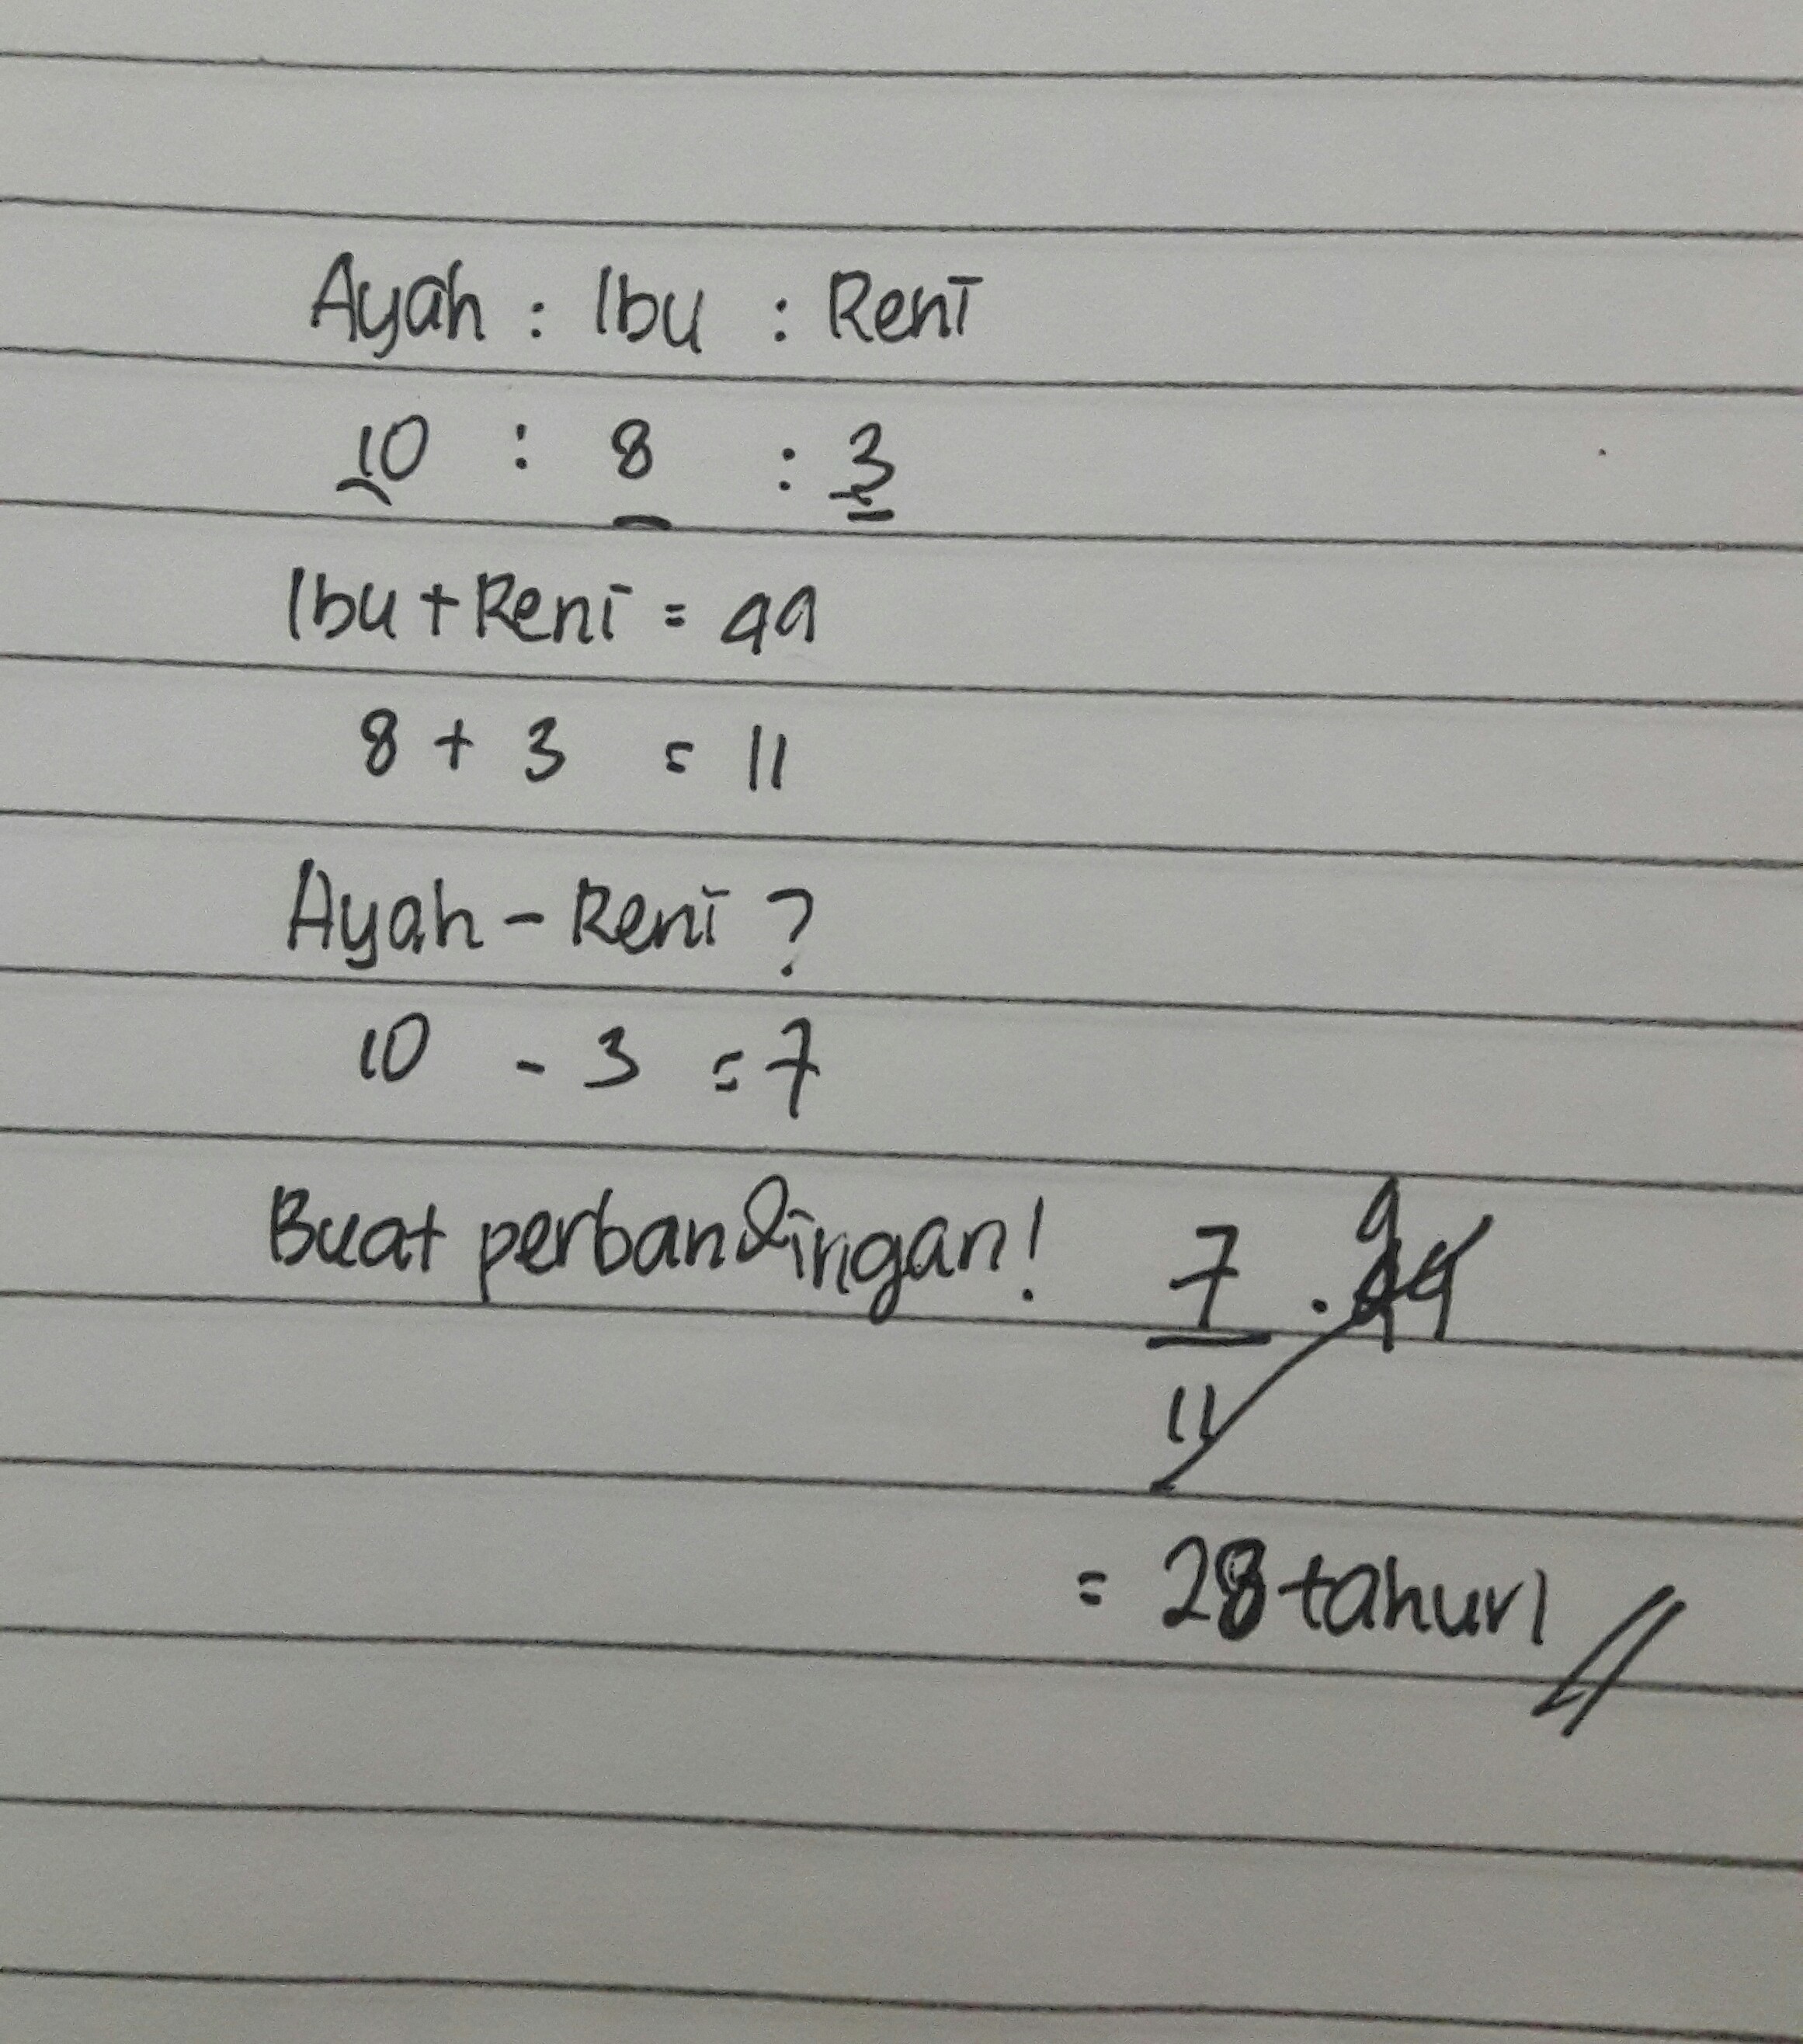 Ayah : Ibu : Reni
10 : 8 : 3
Ibu + Reni = 44
8 + 3 = 11
Ayah - Reni ?
10 - 3 = 7
Buat perbandingan! 7/11 . 44 4
= 28 tahun //